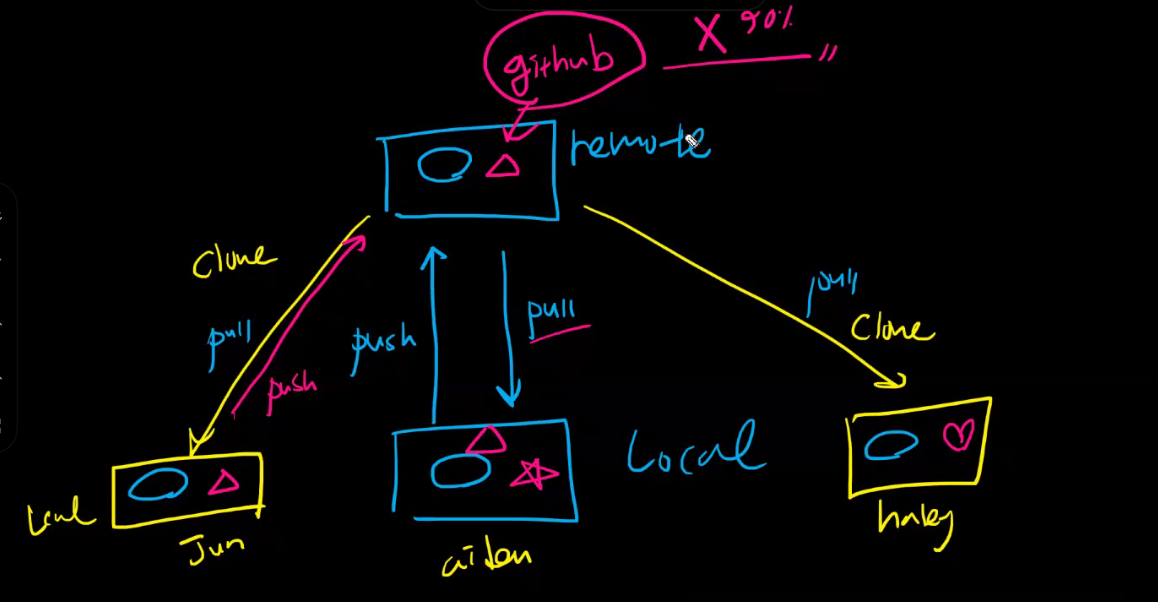 github
X 90%
remote
Clone
pull
push
push
pull
pull
Clone
Local
Local
Jun
aidan
haley